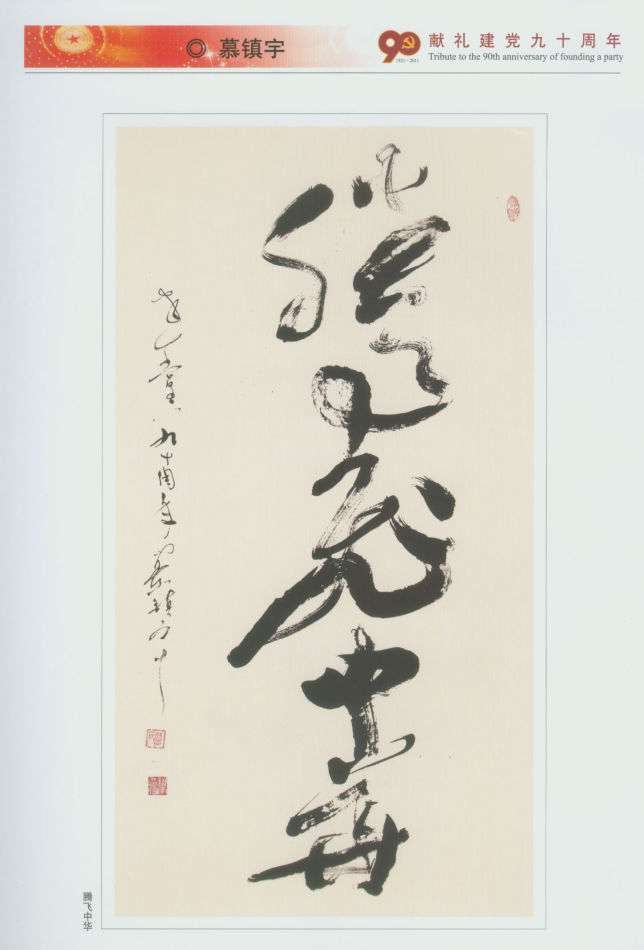 ◎ 慕镇宇
献礼建党九十周年
1921-2011
Tribute to the 90th anniversary of founding a party
腾飞中华
建党九十周年慕镇宇
腾飞中华